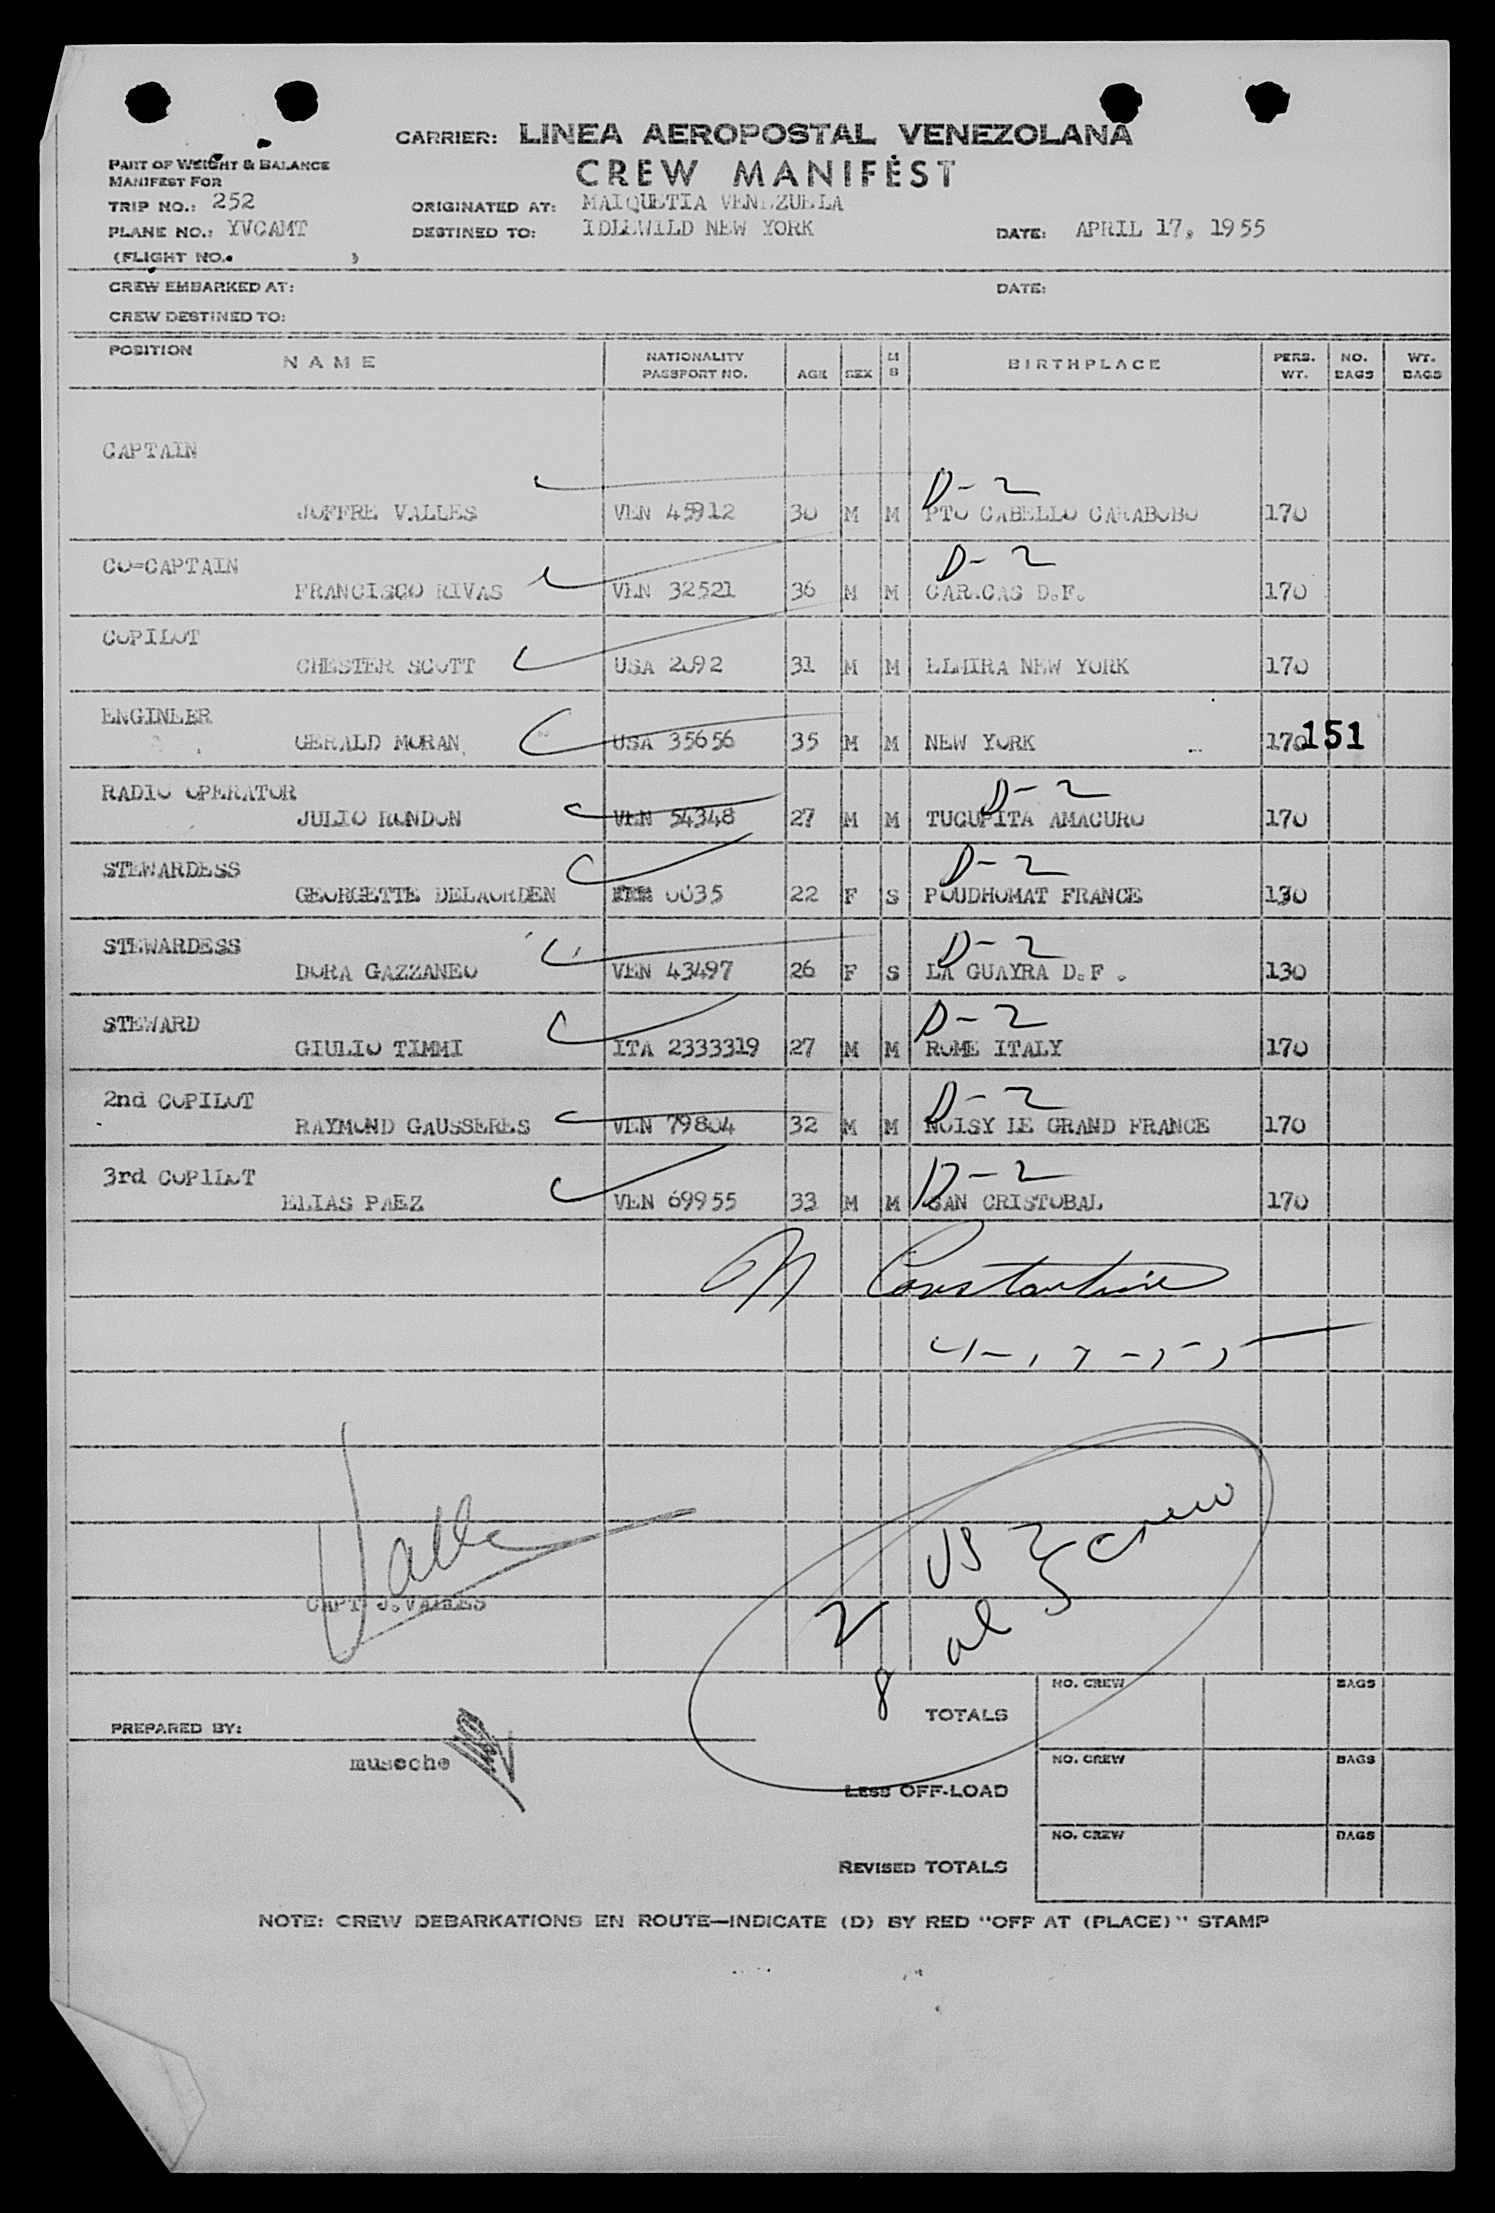 CARRIER: LINEA AEROPOSTAL VENEZOLANA
CREW MANIFEST
PART OF WEIGHT & BALANCE
MANIFEST FOR
TRIP NO.: 252 ORIGINATED AT: MAIQUETIA VENEZUELA
PLANE NO.: YVCAMT DESTINED TO: IDLEWILD NEW YORK DATE: APRIL 17, 1955
(FLIGHT NO. )
CREW EMBARKED AT: DATE:
CREW DESTINED TO:
POSITION NAME NATIONALITY PASSPORT NO. AGE SEX M S BIRTHPLACE PERS. WT. NO. BAGS WT. BAGS
CAPTAIN
D-2
JOFFRE VALLES VEN 45912 30 M M PTO CABELLO CARABOBO 170
CO-CAPTAIN D-2
FRANCISCO RIVAS VEN 32521 36 M M CARACAS D.F. 170
COPILOT
CHESTER SCOTT USA 2092 31 M M ELMIRA NEW YORK 170
ENGINEER
GERALD MORAN USA 35656 35 M M NEW YORK 170 151
RADIO OPERATOR D-2
JULIO RONDON VEN 54348 27 M M TUCUPITA AMACURO 170
STEWARDESS D-2
GEORGETTE DELAORDEN 0035 22 F S POUDHOMAT FRANCE 130
STEWARDESS D-2
DORA GAZZANEO VEN 43497 26 F S LA GUAYRA D.F. 130
STEWARD D-2
GIULIO TIMMI ITA 2333319 27 M M ROME ITALY 170
2nd COPILOT D-2
RAYMOND GAUSSERES VEN 79804 32 M M NOISY LE GRAND FRANCE 170
3rd COPILOT D-2
ELIAS PAEZ VEN 69955 33 M M SAN CRISTOBAL 170
M Constantine
4-17-55
Valles
CAPT J. VALLES
2 US
8 al
crew
TOTALS NO. CREW BAGS
PREPARED BY:
museche
LESS OFF-LOAD NO. CREW BAGS
REVISED TOTALS NO. CREW BAGS
NOTE: CREW DEBARKATIONS EN ROUTE—INDICATE (D) BY RED "OFF AT (PLACE)" STAMP